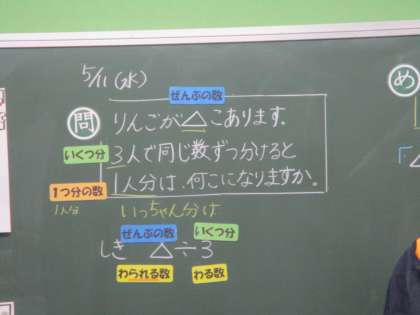 5/11(水)
ぜんぶの数
問 りんごが△こあります。
いくつ分
3人で同じ数ずつ分けると
1つ分の数
1人分は、何こになりますか。
1人分 いっちゃん分は
ぜんぶの数 いくつ分
しき △÷3
わられる数 わる数
め